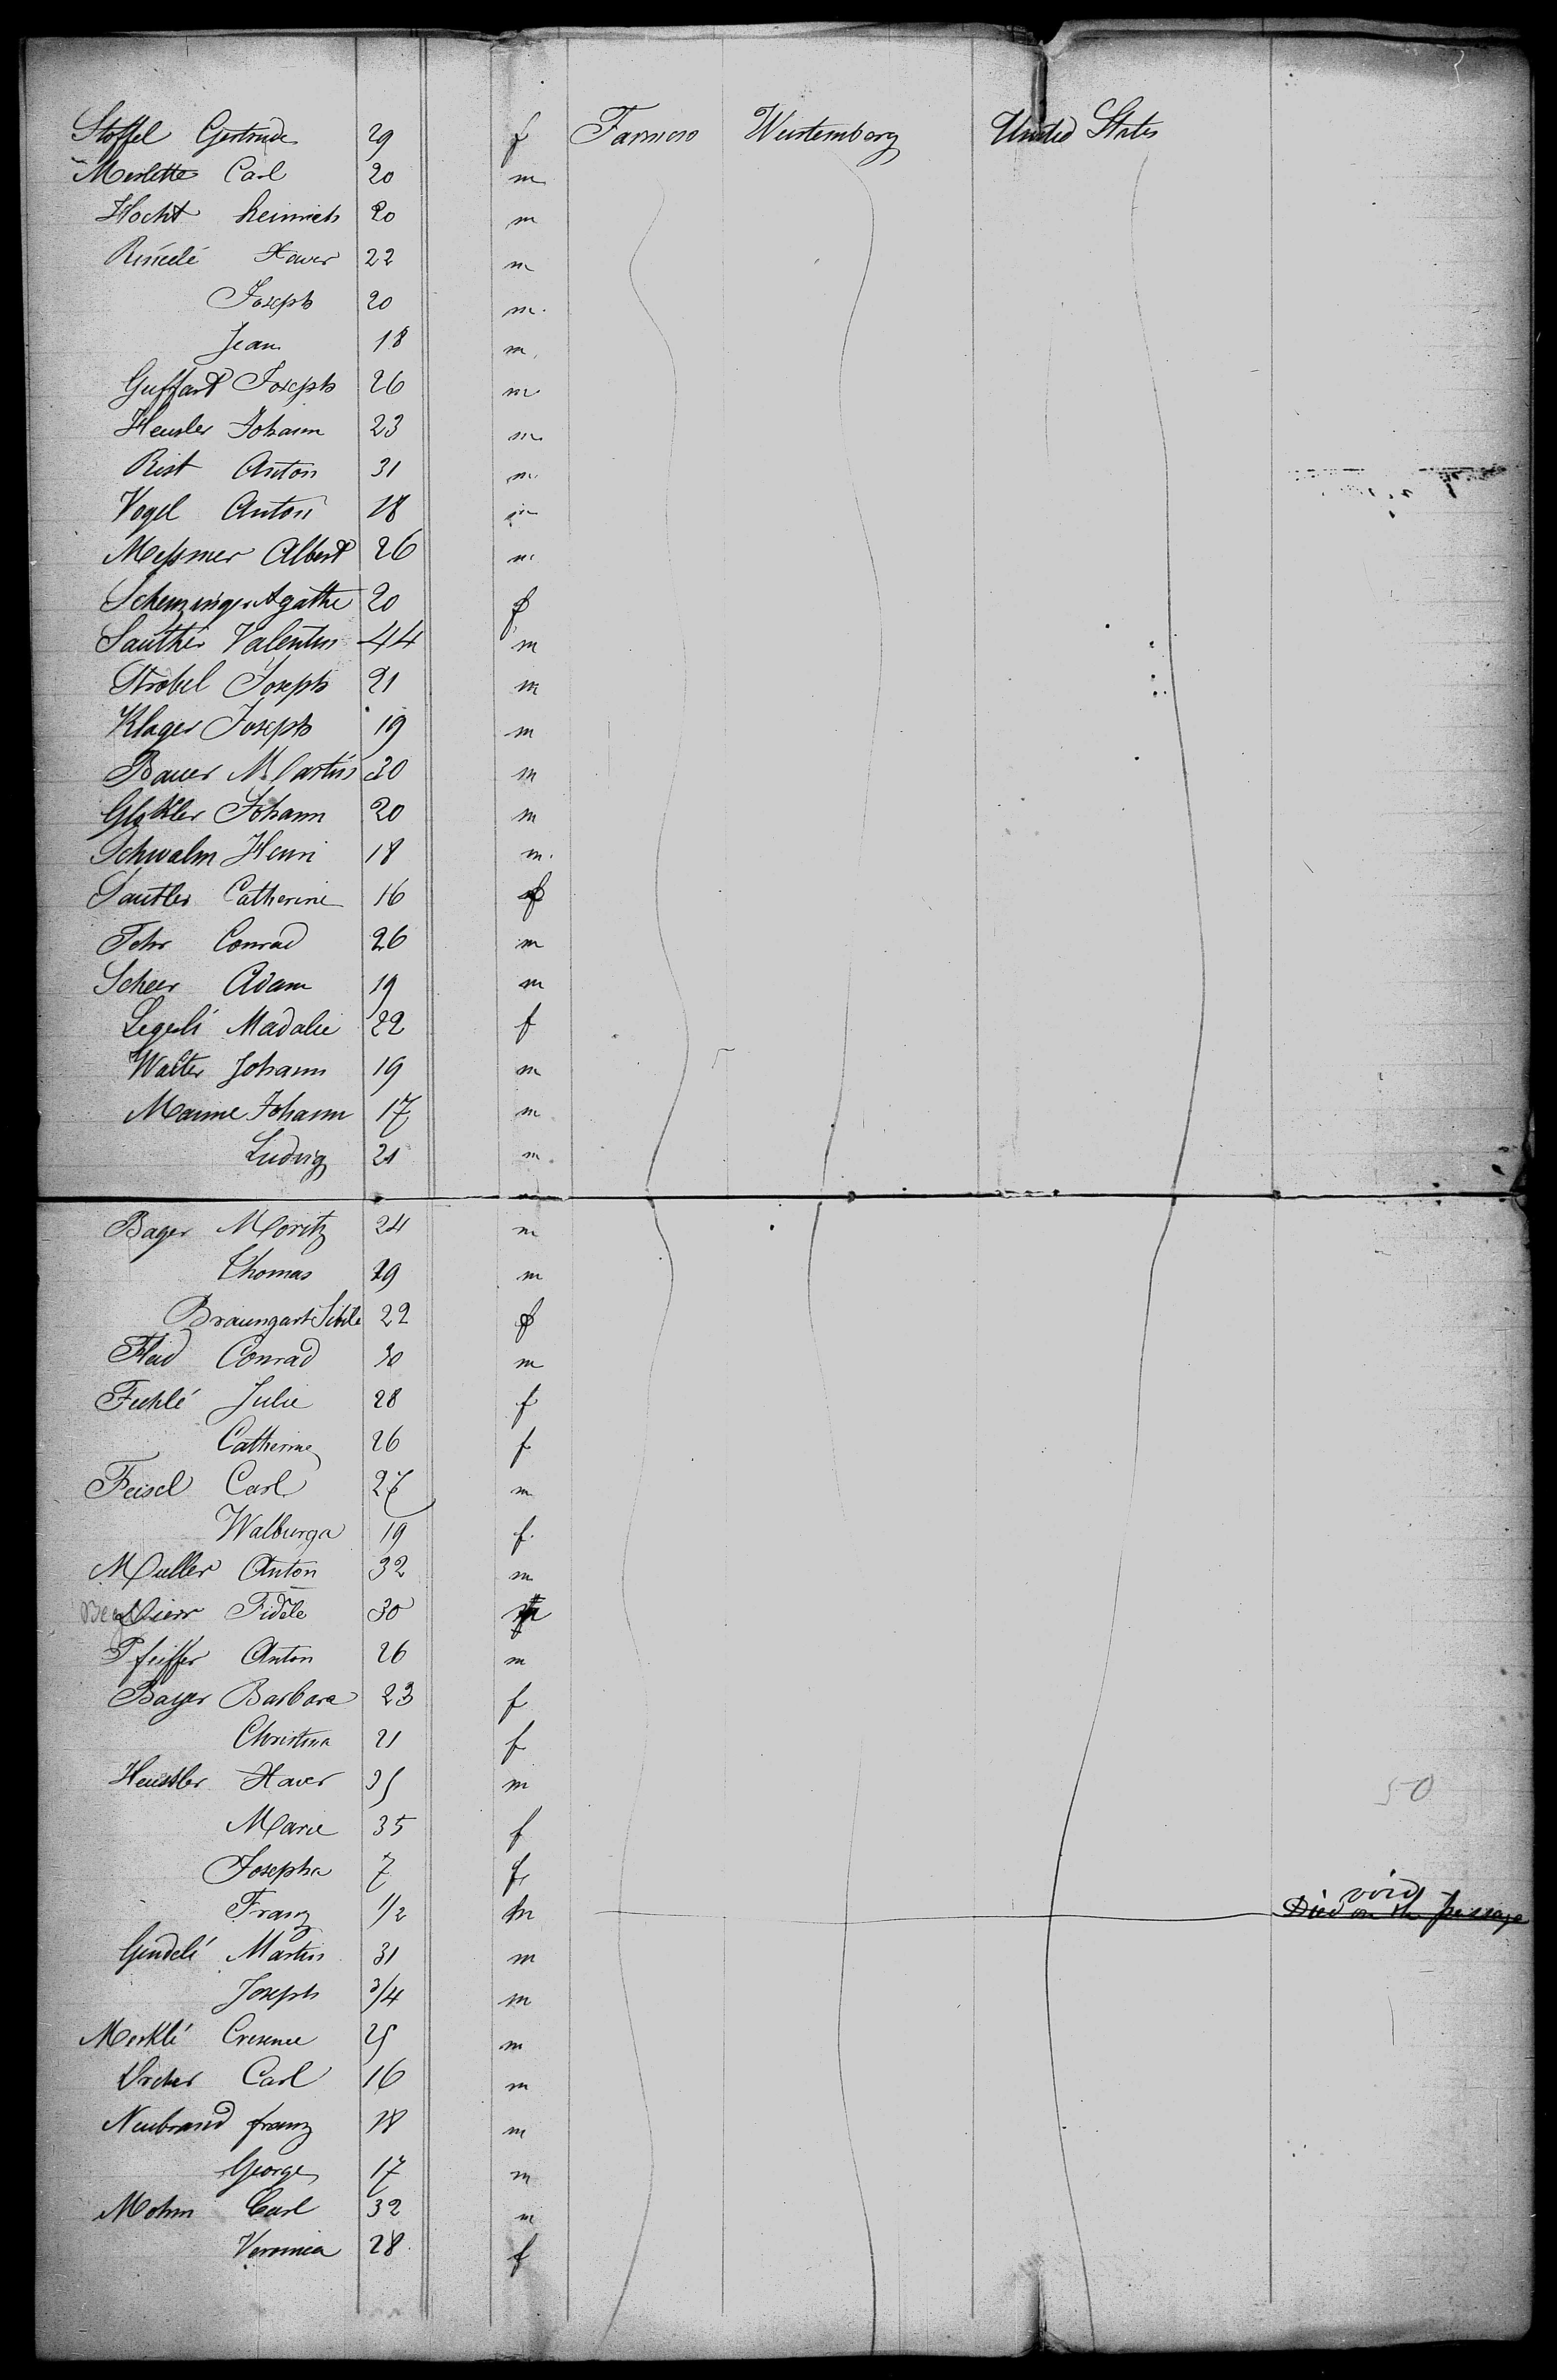 Stoffel Gertrude 29 f Farmers Wurtemberg United States
Merlette Carl 20 m
Hocht heinrich 20 m
Xaver 22 m
Joseph 20 m.
Jean 18 m.
Guffart Joseph 26 m
Heusler Johann 23 m
Rist Anton 31 m
Vogel Anton 18 m
Meßmer Albert 26 m
Schenzinger Agathe 20 f
Sauther Valentin 44 m
Strobel Joseph 21 m
Klager Joseph 19 m
Bauer Martin 30 m
Glokler Johann 20 m
Schwalm Henri 18 m.
Sautler Catherine 16 f
Fehr Conrad 26 m
Scheer Adam 19 m
Madalie 22 f
Walter Johann 19 m
Manne Johann 17 m
Ludwig 21 m
Bager Moritz 24 m
Thomas 29 m
Braungart 22 f
Conrad 30 m
Fuhlé Julie 28 f
Catherine 26 f
Feisel Carl 27 m
Walburga 19 f.
Muller Anton 32 m
Dierr Fidele 30
Pfeiffer Anton 26 m
Bayer Barbara 23 f
Christina 21 f
Heussler Xaver 35 m
50
Marie 35 f
Josepha 7 f
void
Franz 1/2 m Died on the passage
Gindelé Martin 31 m
Joseph 3/4 m
Merklé Cresence 25 m
Carl 16 m
Neubrand franz 18 m
George 17 m
Mohm Carl 32 m
Veronica 28 f